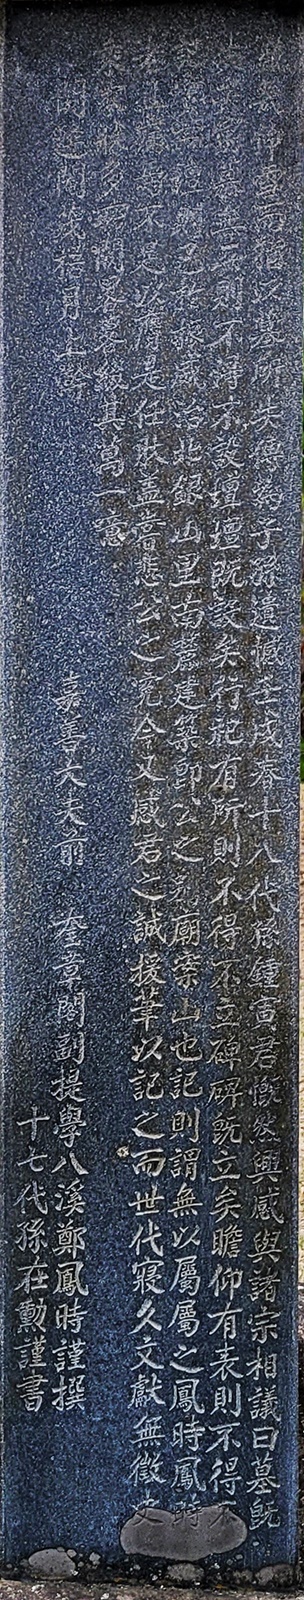 雪而猶以墓所失傳爲子孫遺憾壬戌春十八代孫鍾寅君慨然興感與諸宗相議曰墓旣
則不得不設壇壇旣設矣行祀有所則不得不立碑碑旣立矣瞻仰有表則不得不
咸治北銀山里南麓建築卽公之廟案山也記則謂無以屬屬之鳳時鳳時
不足以膺是任然盖嘗悲公之冤今又感君之誠援筆以記之而世代寢久文獻無徵史
多所闕畧畧綴其萬一焉
閼逢閹茂復月上澣 嘉善大夫前 奎章閣副提學八溪鄭鳳時謹撰
十七代孫在勳謹書